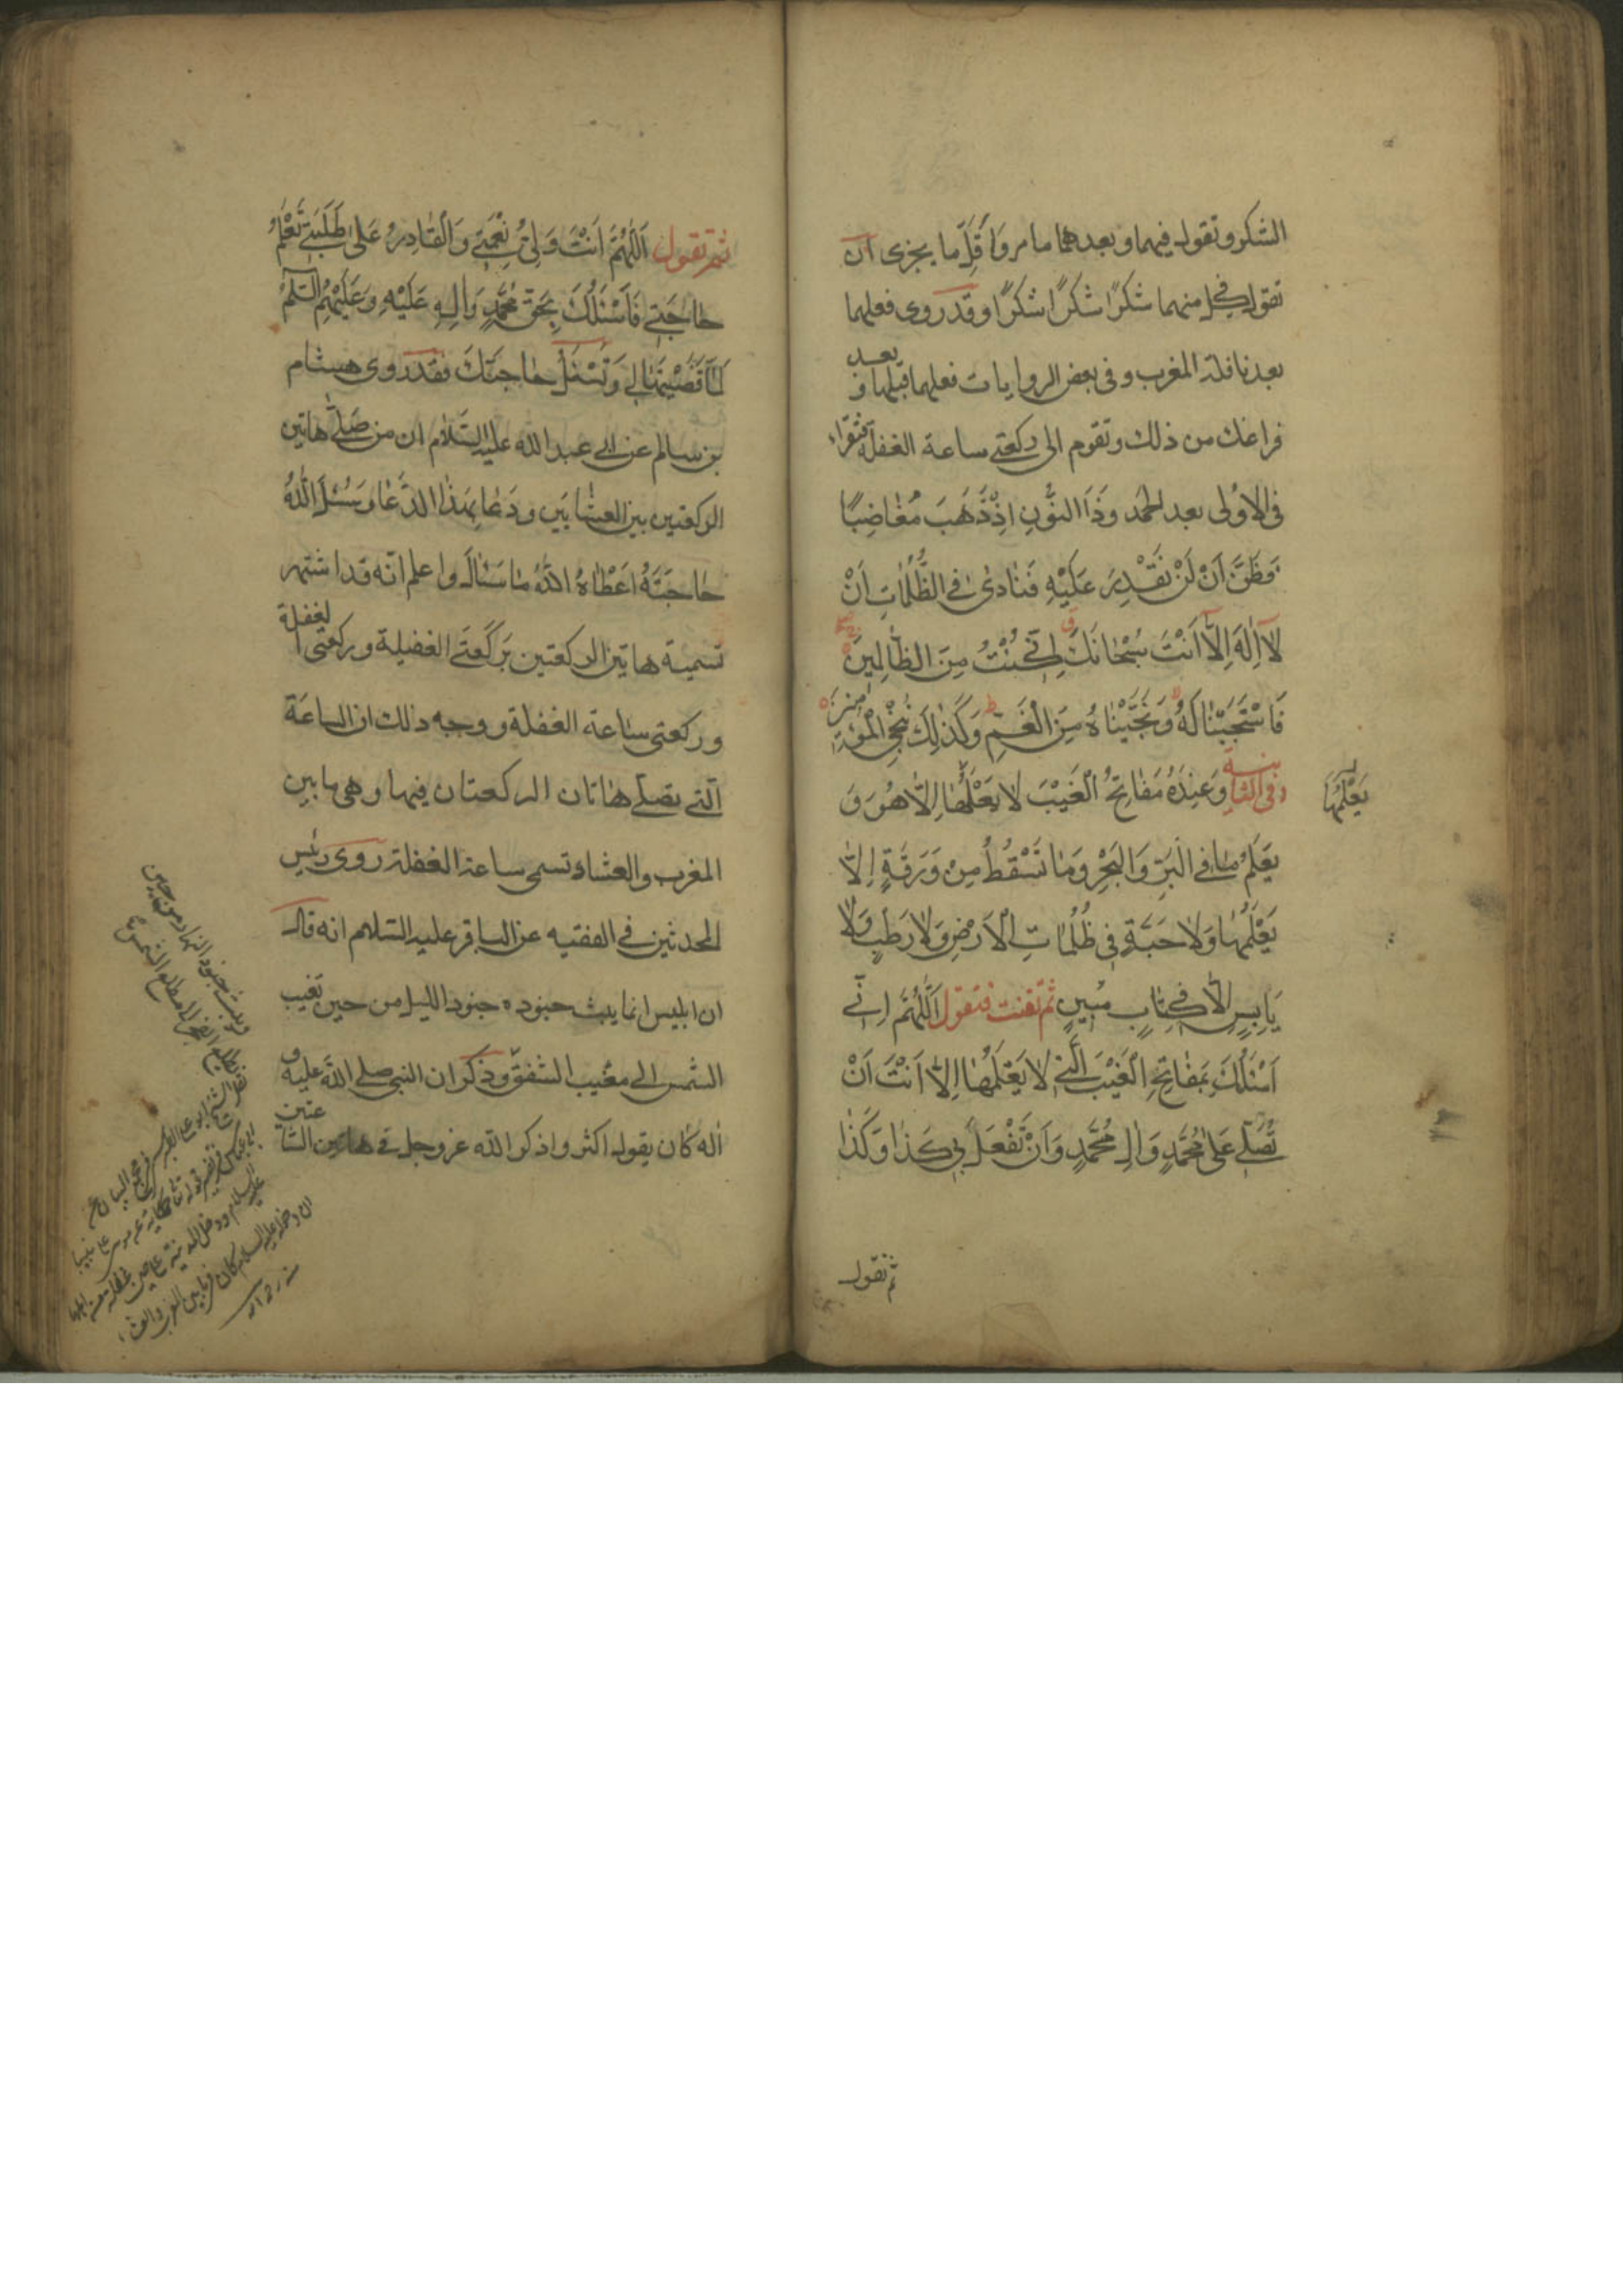 الشكر وتقول فيهما وبعدهما ما مر واقل ما يجزى ان
تقول في كل منهما شكرًا شكرًا شكرًا وقد روى فعلهما
بعد نافلة المغرب وفى بعض الروايات فعلهما قبلها وبعد
فراغك من ذلك وتقوم الى ركعتى ساعة الغفلة فتقراء
فى الاُولى بعد الحمد وَذَا النُّونِ اِذْ ذَهَبَ مُغَاضِبًا
فَظَنَّ اَنْ لَنْ نَقْدِرَ عَلَيْهِ فَنَادىٰ فِى الظُّلُمَاتِ اَنْ
لَآ اِلٰهَ اِلَّآ اَنْتَ سُبْحَانَكَ اِنِّى كُنْتُ مِنَ الظَّالِمِينَ
فَاسْتَجَبْنَا لَهُ وَنَجَّيْنَاهُ مِنَ الْغَمِّ وَكَذٰلِكَ نُنْجِى الْمُؤْمِنِينَ
وفى الثانية وَعِنْدَهُ مَفَاتِحُ الْغَيْبِ لَا يَعْلَمُهَا اِلَّا هُوَ وَ
يَعْلَمُهَا
يَعْلَمُ مَا فِى الْبَرِّ وَالْبَحْرِ وَمَا تَسْقُطُ مِنْ وَرَقَةٍ اِلَّا
يَعْلَمُهَا وَلَا حَبَّةٍ فِى ظُلُمَاتِ الْاَرْضِ وَلَا رَطْبٍ وَلَا
يَابِسٍ اِلَّا فِى كِتَابٍ مُبِينٍ ثم تقنت فتقول اَللّٰهُمَّ اِنِّى
اَسْئَلُكَ بِمَفَاتِحِ الْغَيْبِ الَّتِى لَا يَعْلَمُهَا اِلَّا اَنْتَ اَنْ
تُصَلِّىَ عَلىٰ مُحَمَّدٍ وَاٰلِ مُحَمَّدٍ وَاَنْ تَفْعَلَ بِى كَذَا وَكَذَا
ثم تقول
ثم تقول اَللّٰهُمَّ اَنْتَ وَلِىُّ نِعْمَتِى وَالْقَادِرُ عَلىٰ طَلِبَتِى تَعْلَمُ
حَاجَتِى فَاَسْئَلُكَ بِحَقِّ مُحَمَّدٍ وَاٰلِهِ عَلَيْهِ وَعَلَيْهِمُ السَّلٰمُ
لَمَّا قَضَيْتَهَا لِى وَتَسْئَلُ حَاجَتَكَ فقد روى هشام
بن سالم عن ابى عبد الله عليه السّلام ان من صَلّى هاتين
الركعتين بين العشايين ودَعَا بهذا الدّعَا وسَئلَ اللّٰهَ
حَاجَتَهُ اَعْطَاهُ اللّٰهُ مَا سَئَالَ واعلم انّه قد اشتهر
تسمية هاتين الركعتين بركعتى الغفيلة وركعتى الغفلة
وركعتى ساعة الغفلة ووجه ذلك ان الساعة
الّتى تصلّى هاتان الركعتان فيها وهى ما بين
المغرب والعشاء تسمى ساعة الغفلة روى رئيس
المحدثين فى الفقيه عن الباقر عليه السّلام انه قال
ان ابليس انما يبث جنوده جنود الليل من حين تغيب
الشمس الى مغيب الشفق وذكر ان النبى صلى اللّٰه عليه و
اله كان يقول اكثروا ذكر اللّٰه عز وجل فى هاتين الساعتين
ويبث جنود النهار من حين
يطلع الفجر الى مطلع الشمس